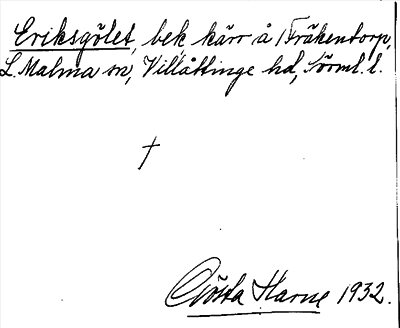 Eriksgölet, bek, kärr å Fräkentorp,
L. Malma sn, Villåttinge hd, Sörml. l.
†
Gösta Harne 1932.